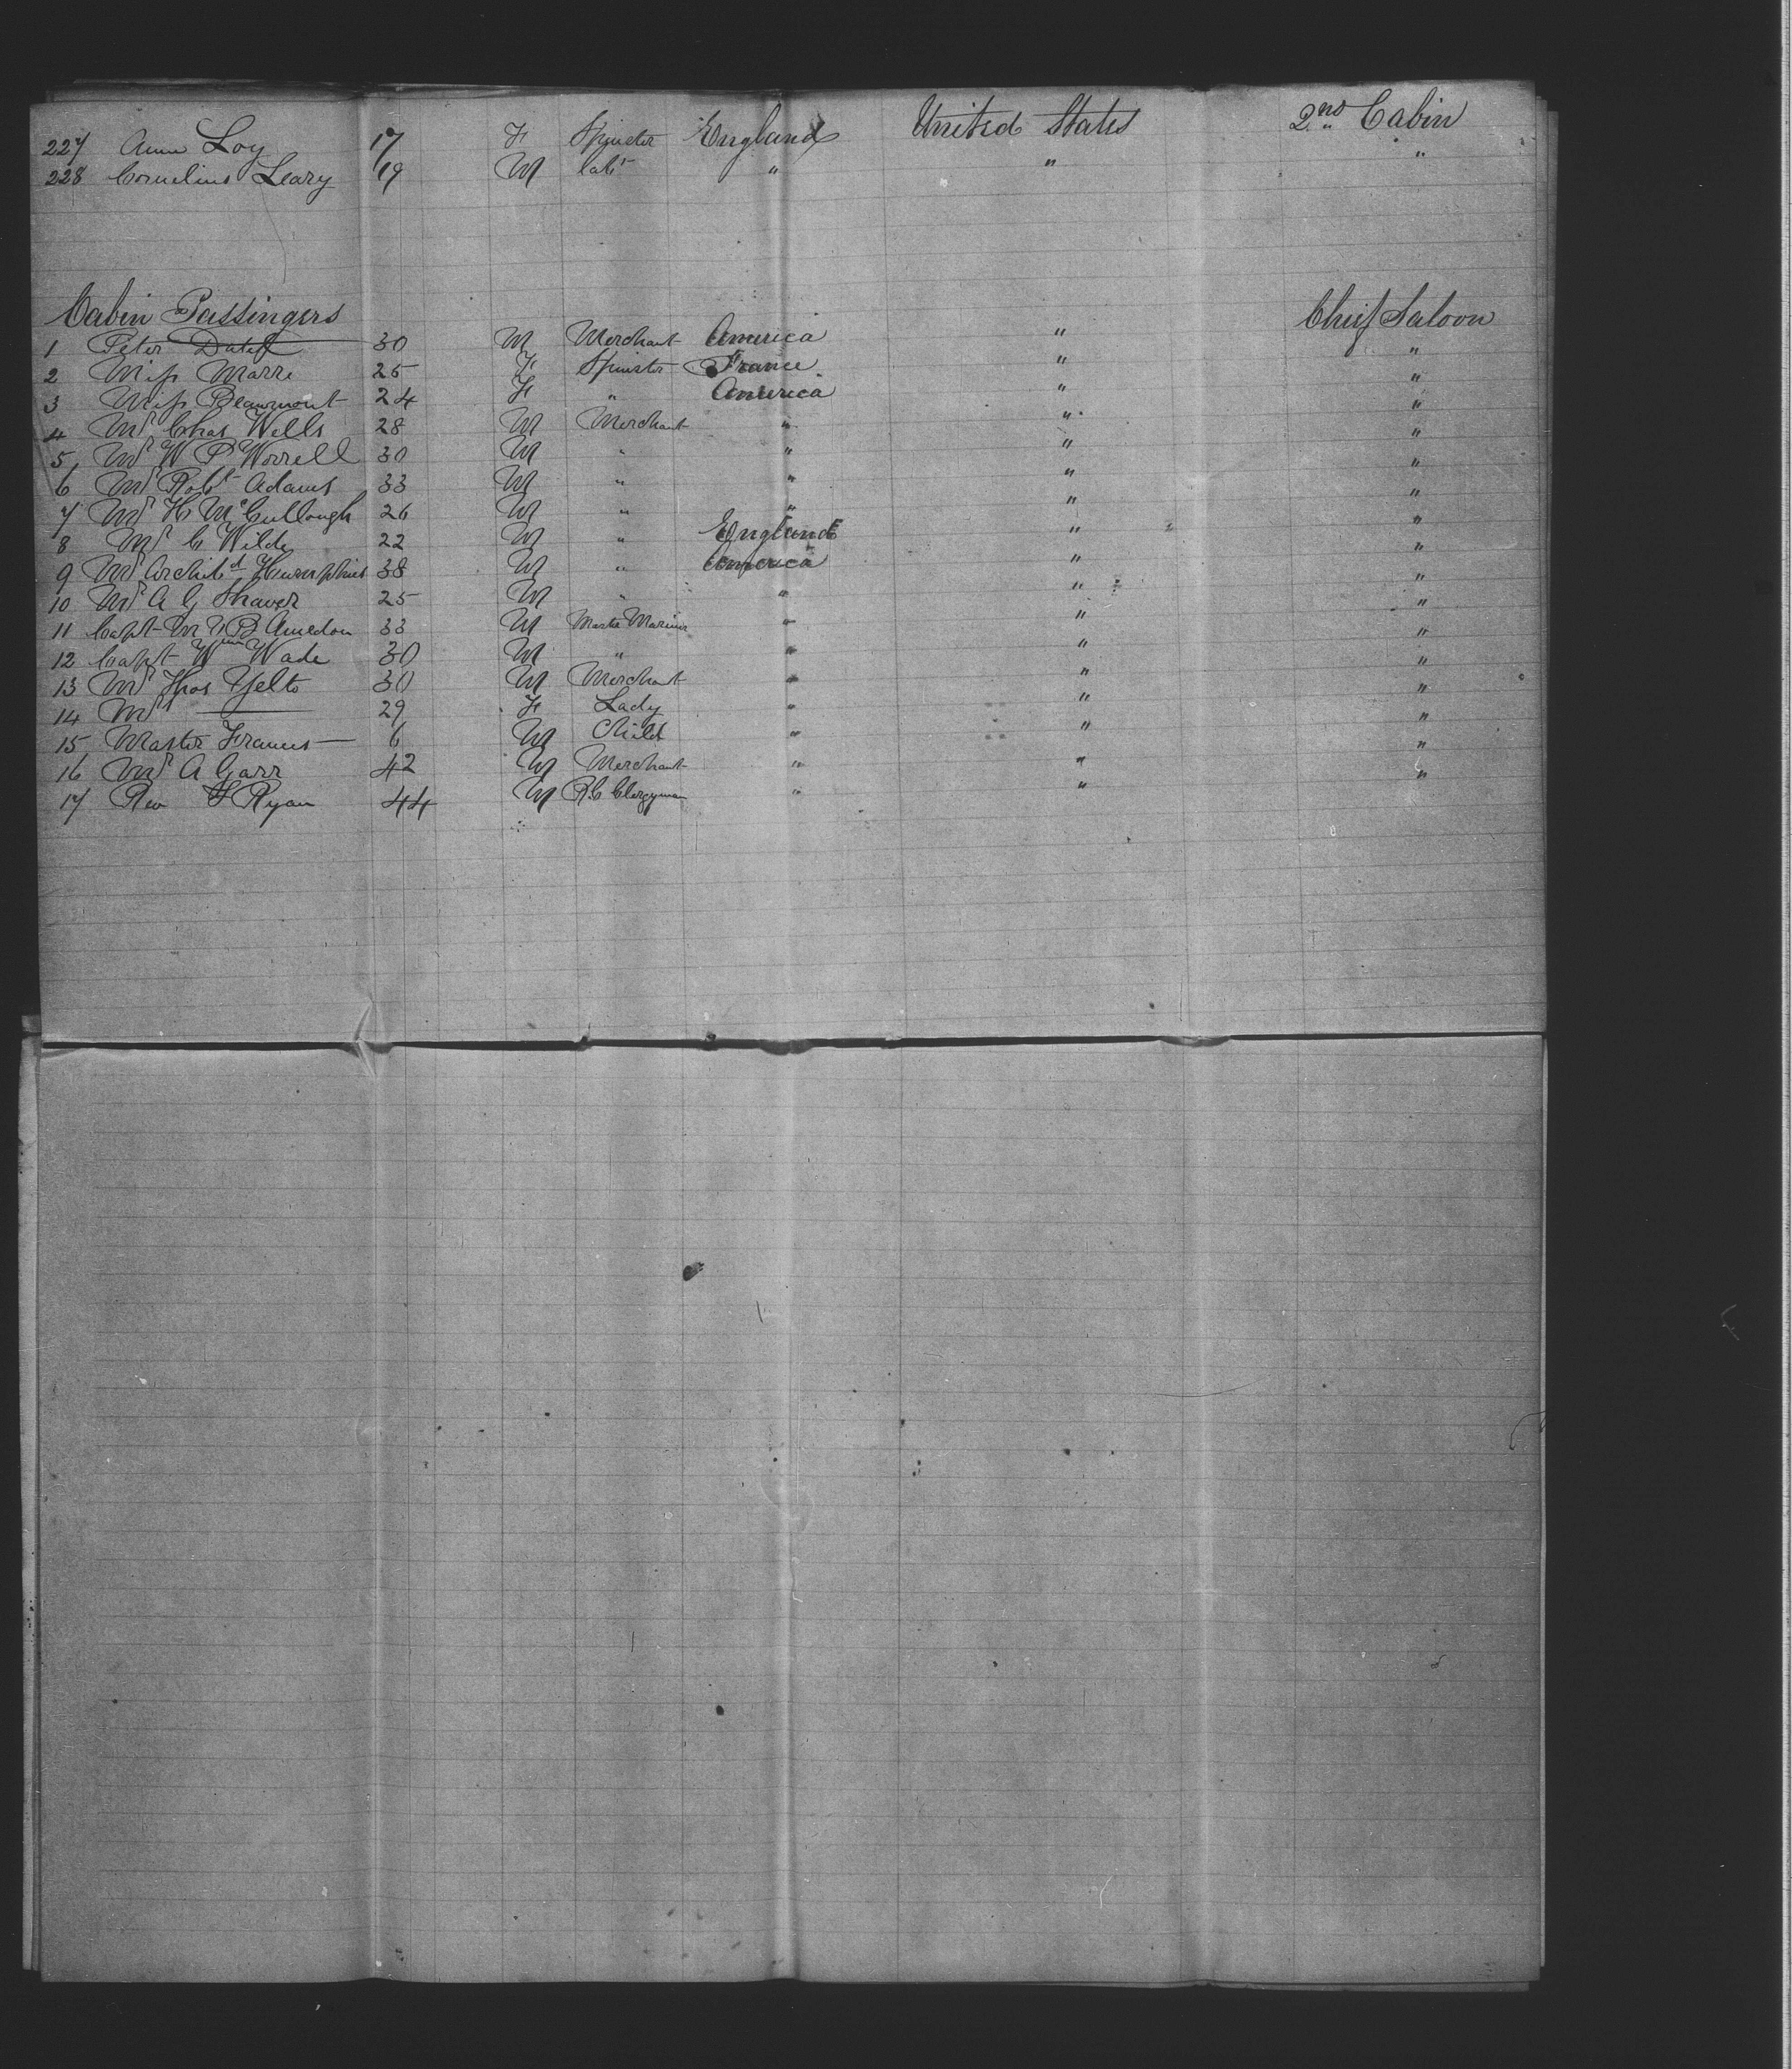 227 Anne Loy 17 F Spinster England United States 2nd Cabin
228 Cornelius Leary 19 M labr " " "
Cabin Passingers Chief Saloon
1 Peter 30 M Merchant America " "
2 Miss Marre 25 F Spinster France " "
3 Miss Beaumont 24 F " America " "
4 Mr Chas Wells 28 M Merchant " " "
5 Mr W P Worrell 30 M " " " "
6 Mr Robt Adams 33 M " " " "
7 Mr H McCullough 26 M " " " "
8 Mr C Wilde 22 M " England " "
9 Mr Archibd Humphries 38 M " America " "
10 Mr A G Shaver 25 M " " " "
11 Capt M V B Amedon 33 M Master Mariner " " "
12 Capt Wm Wade 30 M " " " "
13 Mr Thos Yelto 30 M Merchant " " "
14 Mrs — 29 F Lady " " "
15 Master Francis — 6 M Child " " "
16 Mr A Garr 42 M Merchant " " "
17 Rev Ryan 44 M R.C Clergyman " " "